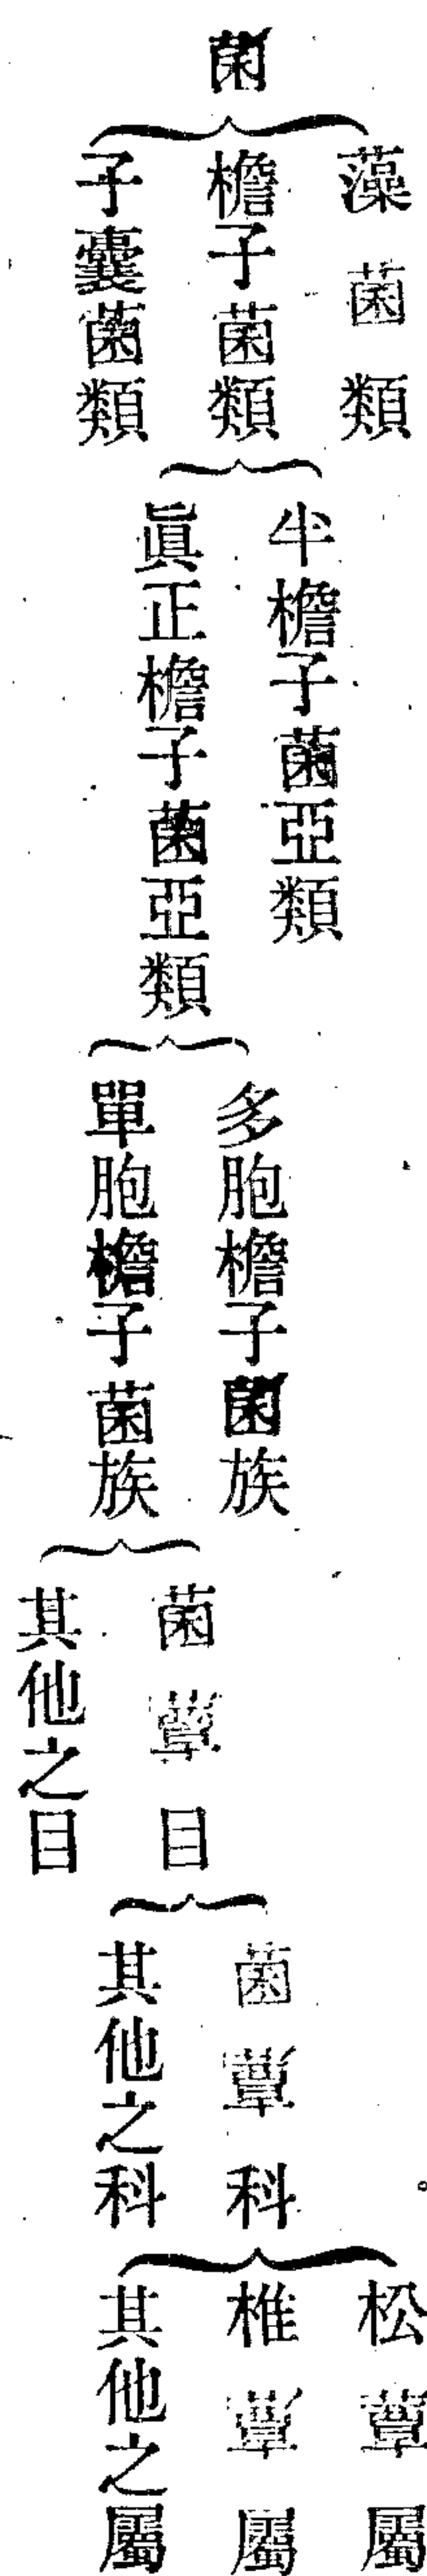 菌
藻菌類
檐子菌類
子囊菌類
半檐子菌亞類
眞正檐子菌亞類
多胞檐子菌族
單胞檐子菌族
菌蕈目
其他之目
菌蕈科
其他之科
松蕈屬
椎蕈屬
其他之屬